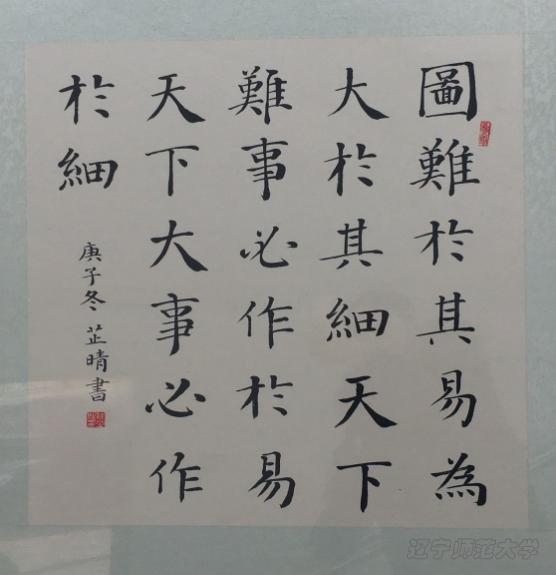 圖難於其易為
大於其細天下
難事必作於易
天下大事必作
於細
庚子冬芷晴書
辽宁师范大学